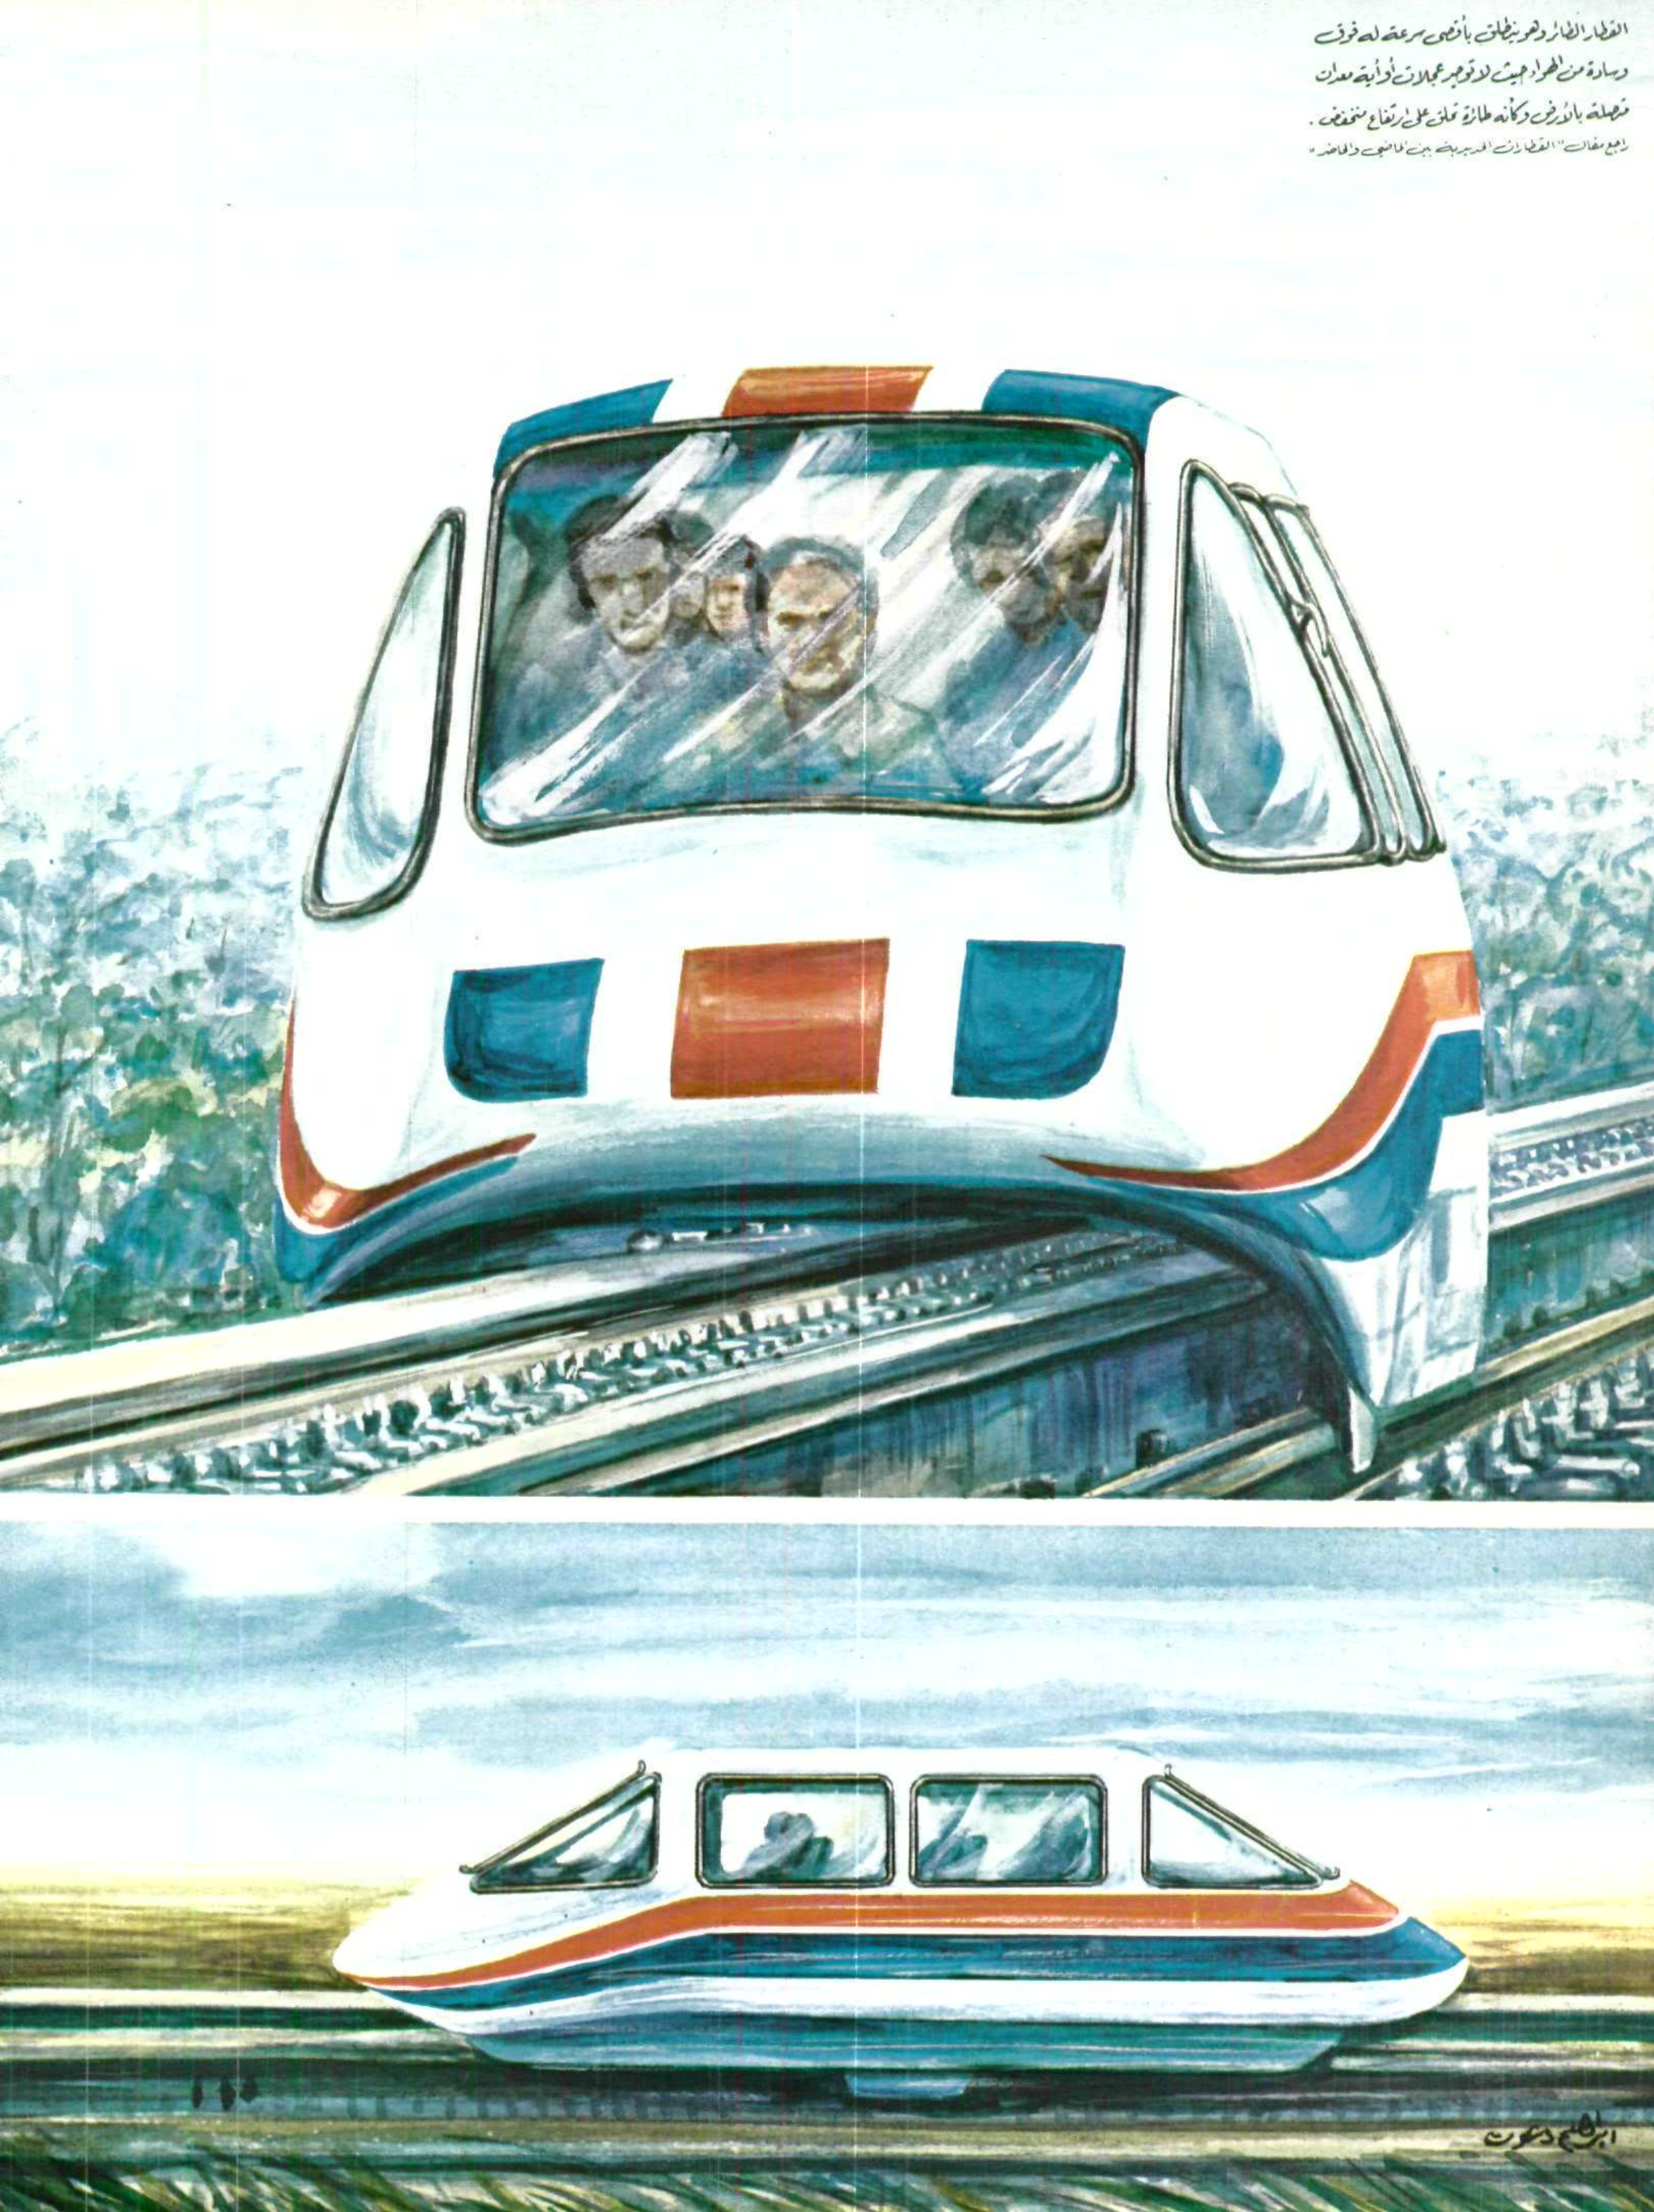 القطار الطائر وهو ينطلق بأقصى سرعة له فوق
وسادة من الهواء حيث لا توجد عجلات أو أية معدات
متصلة بالأرض وكأنه طائرة تحلق على ارتفاع منخفض .
راجع مقال "القطارات الحديدية بين الماضي والحاضر"
ابراهيم دعوت